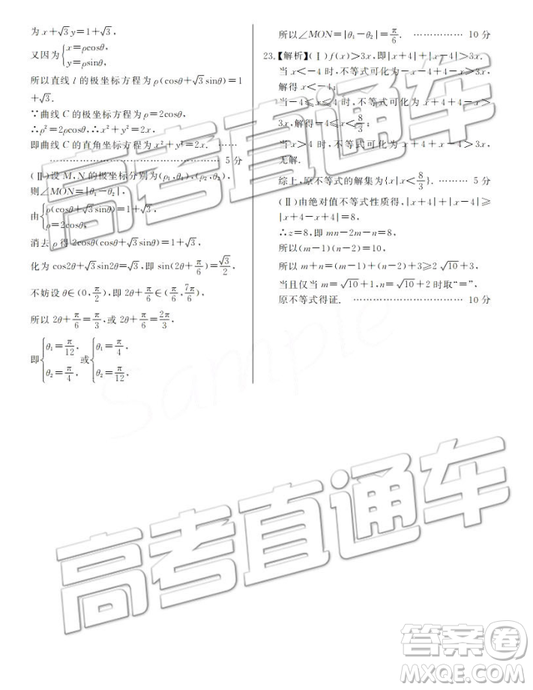 为x+√3y=1+√3.
又因为{x=ρcosθ,
y=ρsinθ,
所以直线l的极坐标方程为ρ(cosθ+√3sinθ)=1
+√3.
∵曲线C的极坐标方程为ρ=2cosθ,
∴ρ²=2ρcosθ,∴x²+y²=2x.
即曲线C的直角坐标方程为x²+y²=2x. ……
…………………… 5分
(Ⅱ)设M,N的极坐标分别为(ρ₁,θ₁),(ρ₂,θ₂),
则∠MON=|θ₁-θ₂|,
由{ρ(cosθ+√3sinθ)=1+√3,
ρ=2cosθ,
消去ρ得2cosθ(cosθ+√3sinθ)=1+√3,
化为cos2θ+√3sin2θ=√3,即sin(2θ+π/6)=√3/2,
不妨设θ∈(0,π/2),即2θ+π/6∈(π/6,7π/6)
所以2θ+π/6=π/3,或2θ+π/6=2π/3.
即{θ₁=π/12,
θ₂=π/4.
或{θ₁=π/4,
θ₂=π/12.
所以∠MON=|θ₁-θ₂|=π/6. …………… 10分
23.【解析】(Ⅰ)f(x)>3x,即|x+4|+|x-4|>3x.
当x<-4时,不等式可化为-x-4+4-x>3x,
解得x<-4;
当-4≤x≤4时,不等式可化为x+4+4-x>
3x,解得-4≤x<8/3;
当x>4时,不等式可化为x+4+x-4>3x,
无解.
综上,原不等式的解集为{x|x<8/3}. …… 5分
(Ⅱ)由绝对值不等式性质得,|x+4|+|x-4|≥
|x+4-x+4|=8,
∴z=8,即mn-2m-n=8,
所以(m-1)(n-2)=10,
所以m+n=(m-1)+(n-2)+3≥2√10+3,
当且仅当m=√10+1,n=√10+2时取"=",
原不等式得证. ………………… 10分
高考直通车
Sample
高考直通车
答案卷
MXQE.COM